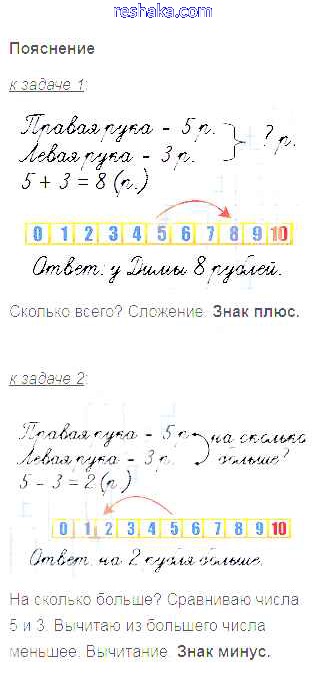 reshaka.com
Пояснение
к задаче 1:
Правая рука - 5 р.
Левая рука - 3 р.
? р.
5 + 3 = 8 (р.)
0 1 2 3 4 5 6 7 8 9 10
Ответ: у Димы 8 рублей.
Сколько всего? Сложение. Знак плюс.
к задаче 2:
Правая рука - 5 р.
Левая рука - 3 р.
на сколько
больше?
5 - 3 = 2 (р.)
0 1 2 3 4 5 6 7 8 9 10
Ответ: на 2 рубля больше.
На сколько больше? Сравниваю числа
5 и 3. Вычитаю из большего числа
меньшее. Вычитание. Знак минус.